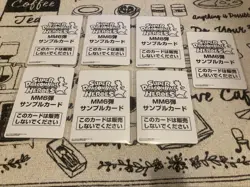 Coffee
anything is
SUPER
DRAGONBALL
HEROES
MM6弾
サンプルカード
このカードは販売
しないでください
SUPER
DRAGONBALL
HEROES
MM6弾
サンプルカード
このカードは販売
しないでください
SUPER
DRAGONBALL
HEROES
MM6弾
サンプルカード
このカードは販売
しないでください
SUPER
DRAGONBALL
HEROES
MM6弾
サンプルカード
このカードは販売
しないでください
SUPER
DRAGONBALL
HEROES
MM6弾
サンプルカード
このカードは販売
しないでください
SUPER
DRAGONBALL
HEROES
MM6弾
サンプルカード
このカードは販売
しないでください
SUPER
DRAGONBALL
HEROES
MM6弾
サンプルカード
このカードは販売
しないでください